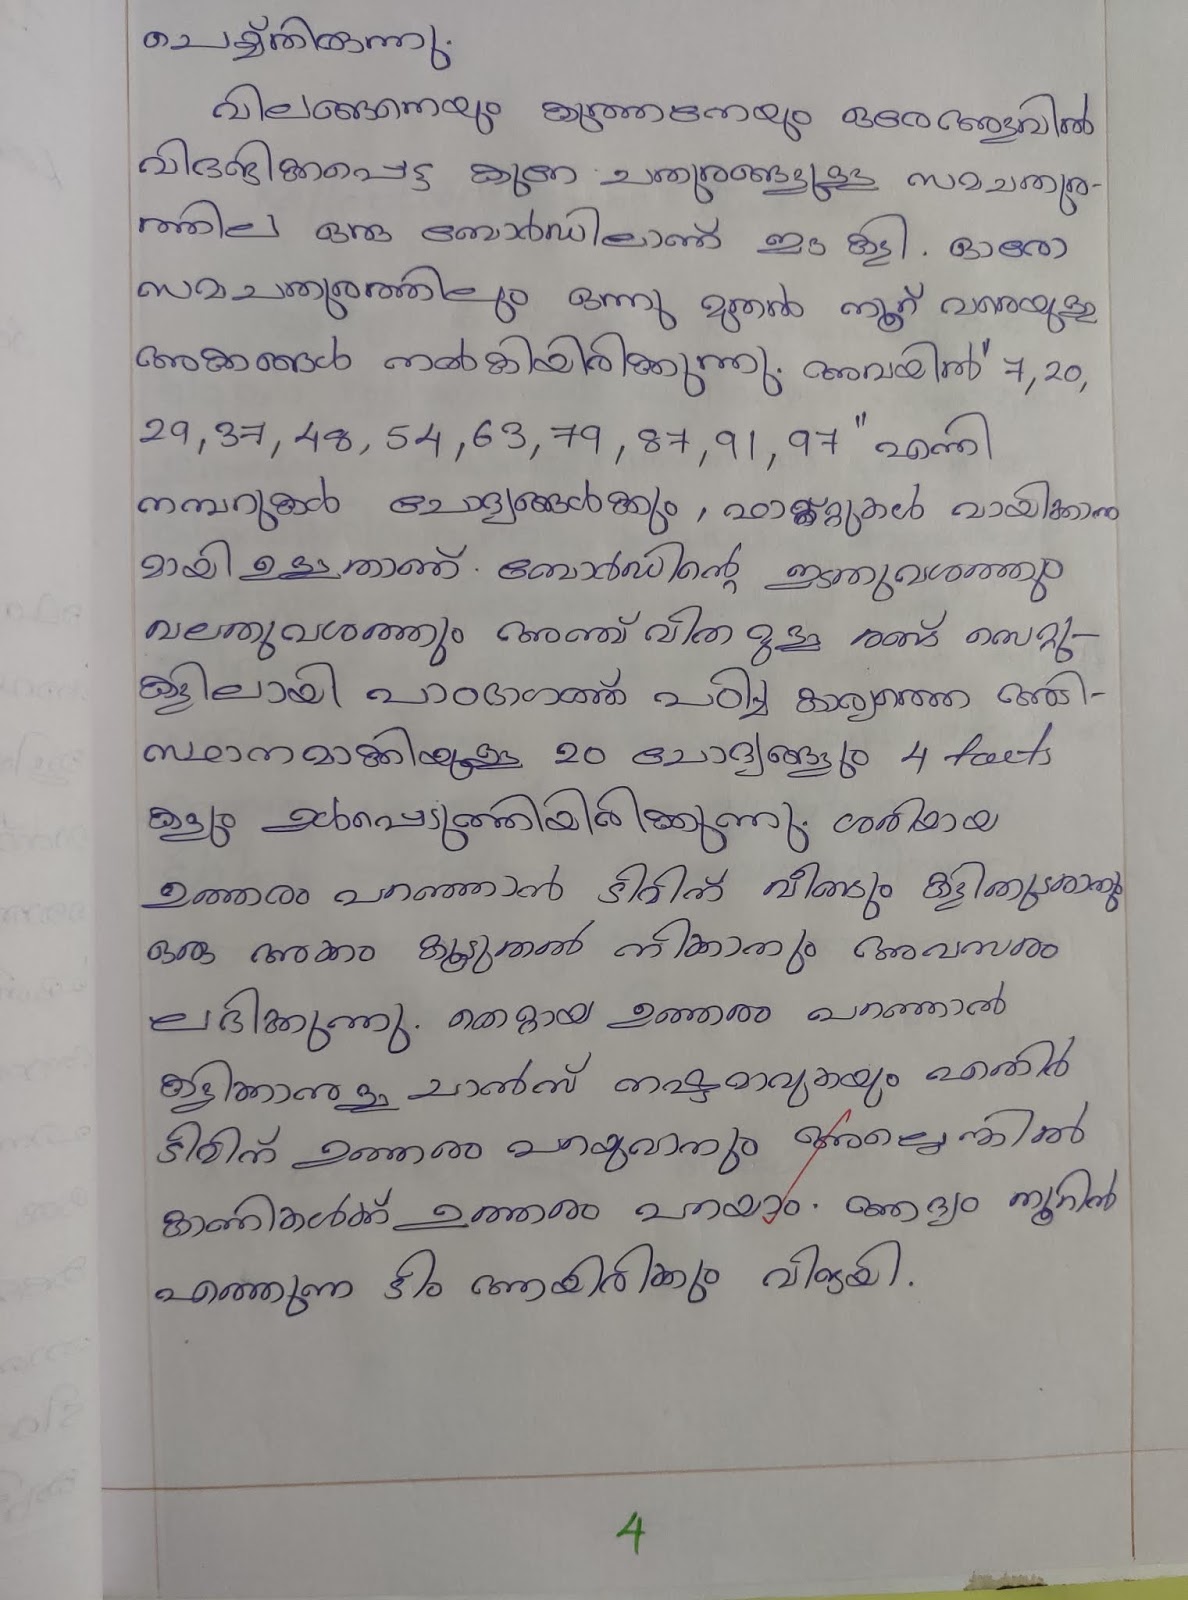 ചെയ്തിരുന്നു.
വിലങ്ങനെയും കുത്തനേയും ഒരേ അളവിൽ
വിഭജിക്കപ്പെട്ട കുറേ ചതുരങ്ങളുള്ള സമചതുര-
ത്തിലെ ഒരു ബോർഡിലാണ് ഈ കളി. ഓരോ
സമചതുരത്തിലും ഒന്നു മുതൽ നൂറ് വരെയുള്ള
അക്കങ്ങൾ നൽകിയിരിക്കുന്നു. അവയിൽ "7, 20,
29, 37, 48, 54, 63, 79, 87, 91, 97" എന്നീ
നമ്പറുകൾ ചോദ്യങ്ങൾക്കും, ഫാക്റ്റുകൾ വായിക്കാനു
മായി ഉള്ളതാണ്. ബോർഡിന്റെ ഇടതുവശത്തും
വലതുവശത്തും അഞ്ച് വീതമുള്ള രണ്ട് സെറ്റു-
കളിലായി പാഠഭാഗത്ത് പഠിച്ച കാര്യത്തെ അടി-
സ്ഥാനമാക്കിയുള്ള 20 ചോദ്യങ്ങളും 4 facts
കളും ഉൾപ്പെടുത്തിയിരിക്കുന്നു. ശരിയായ
ഉത്തരം പറഞ്ഞാൽ ടീമിന് വീണ്ടും കളി തുടരാനും
ഒരു അക്കം കൂടുതൽ നീക്കാനും അവസരം
ലഭിക്കുന്നു. തെറ്റായ ഉത്തരം പറഞ്ഞാൽ
കളിക്കാനുള്ള ചാൻസ് നഷ്ടമാവുകയും എതിർ
ടീമിന് ഉത്തരം പറയുവാനും അല്ലെങ്കിൽ
കാണികൾക്ക് ഉത്തരം പറയാം. ആദ്യം നൂറിൽ
എത്തുന്ന ടീം ആയിരിക്കും വിജയി.
4